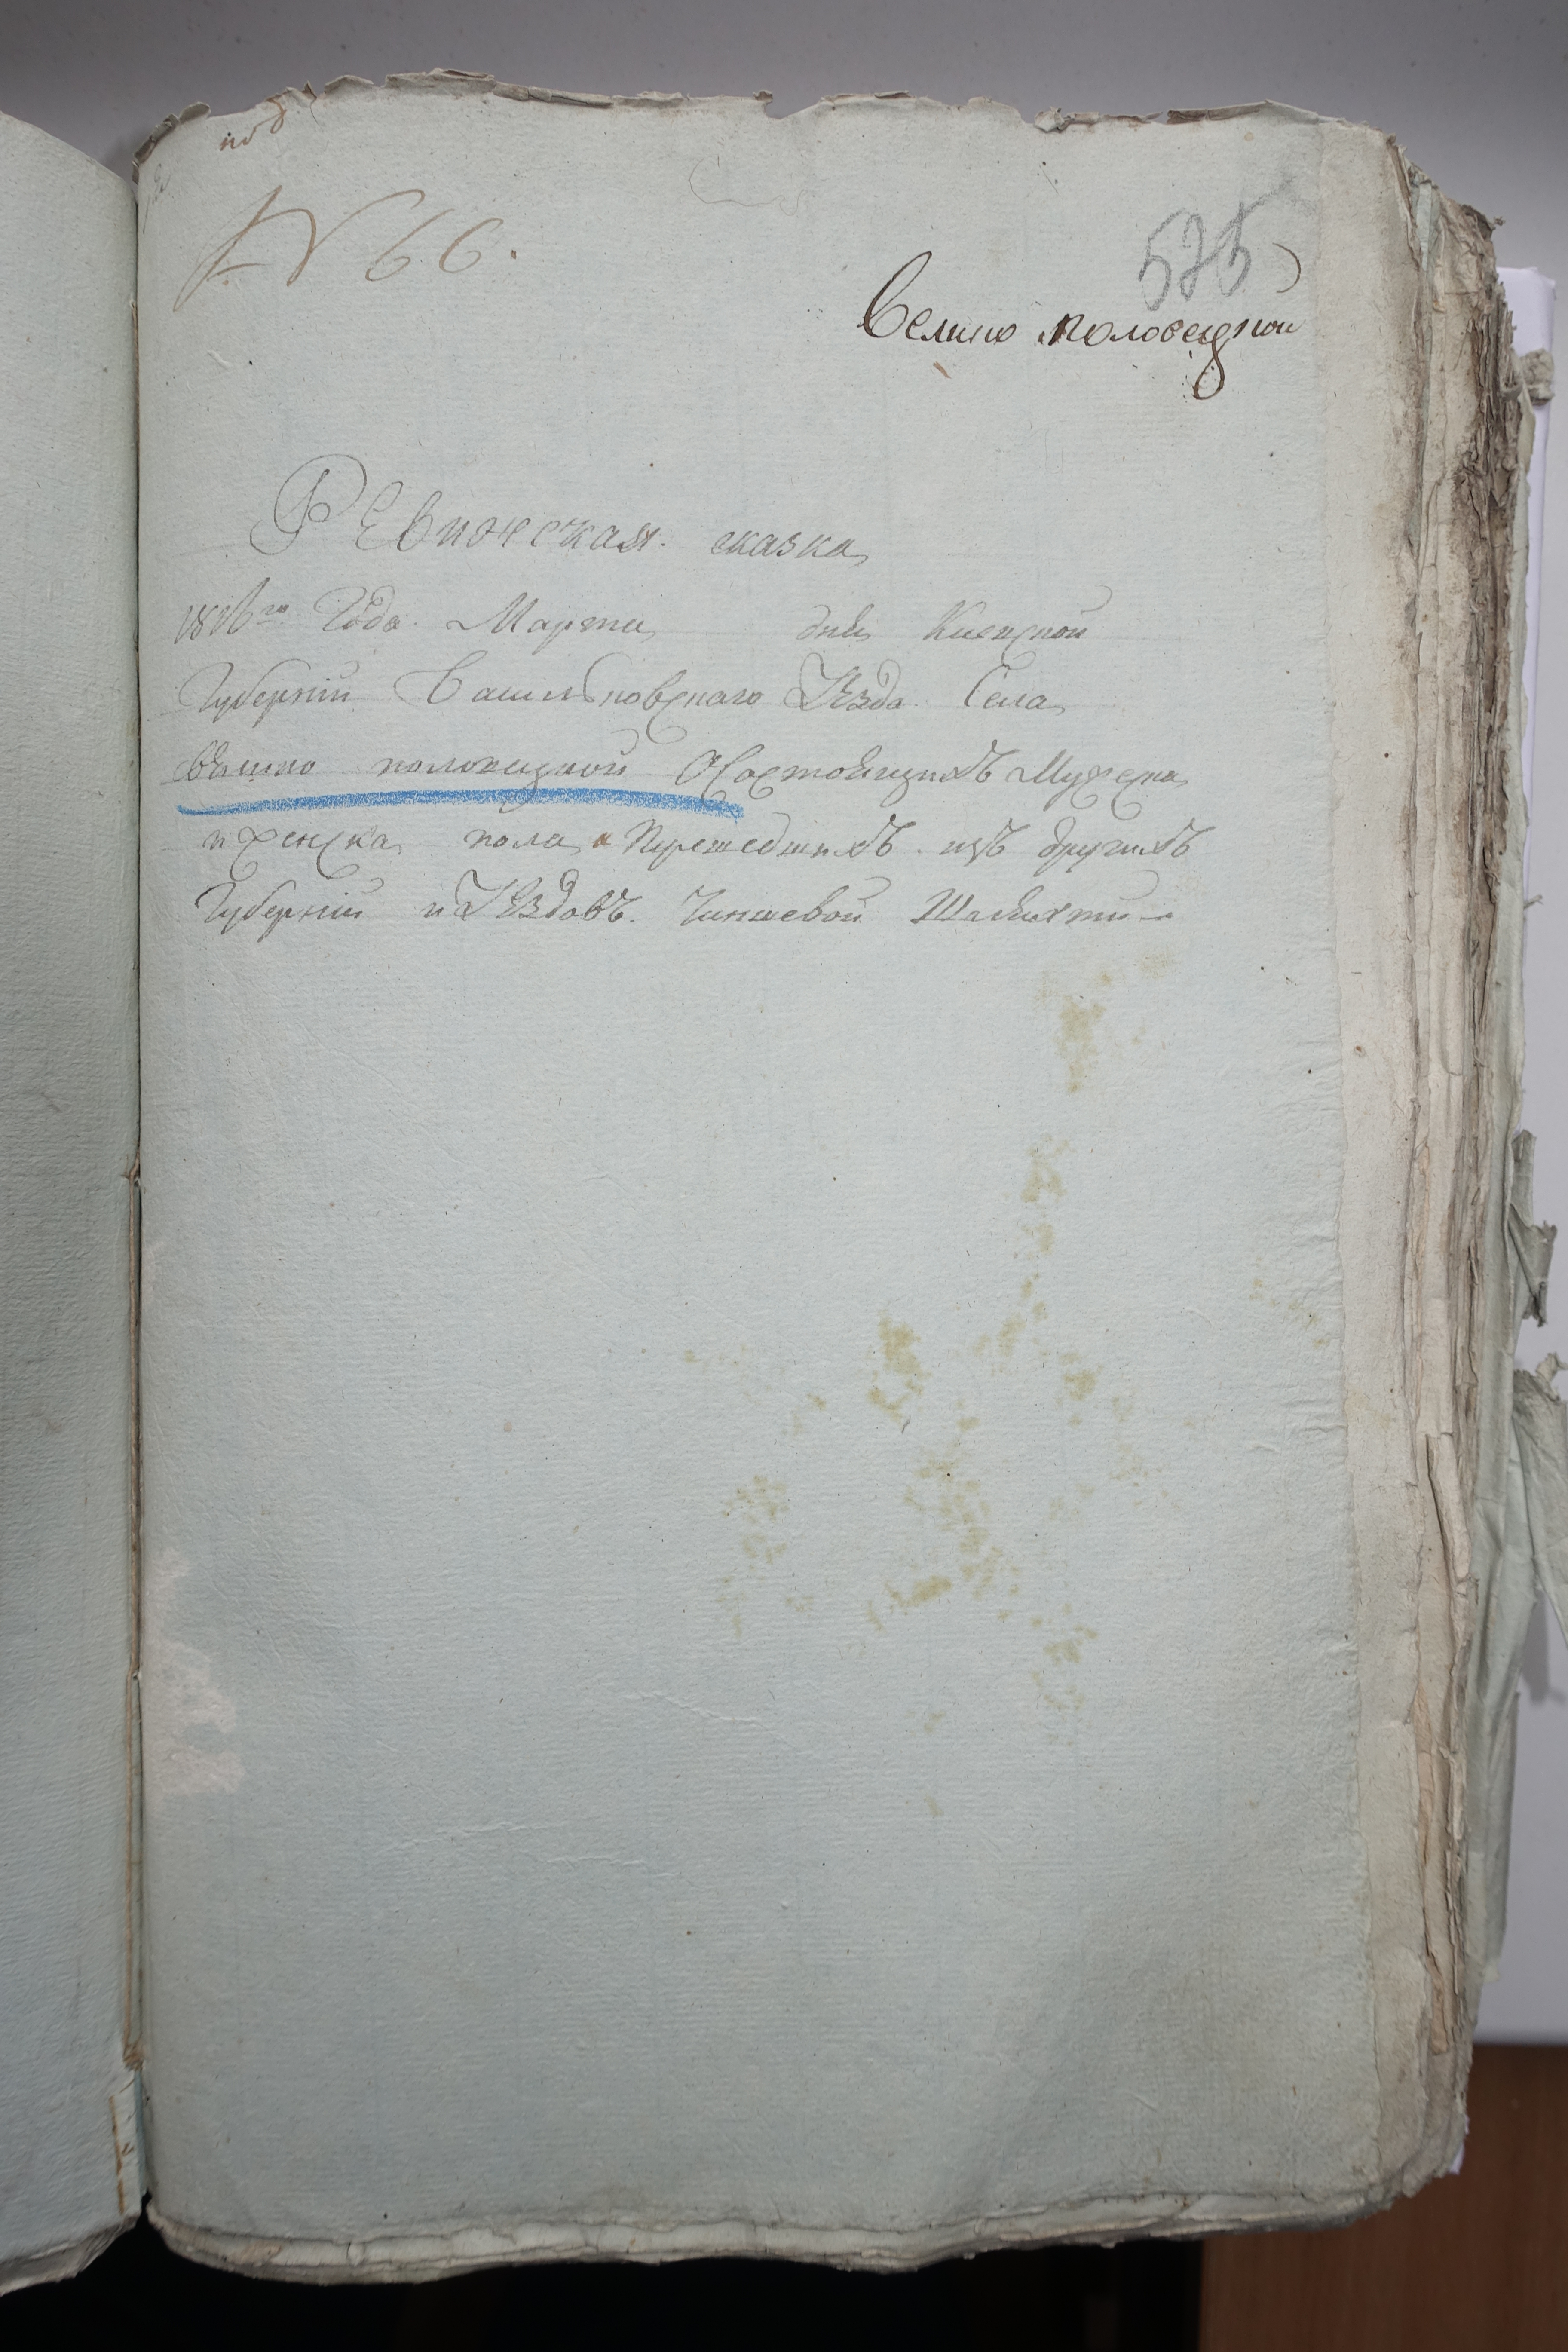 № 66.
525
велико половецкой
РЕвижская сказка
1816го Года Марта дня Киевской
Губерніи Васильковскаго Уезда Села
велико половецкой О Состоящихъ Мужеска
и женска пола и Прешедшихъ изъ другихъ
Губерній и Уездовъ. Чиншевой Шляхти